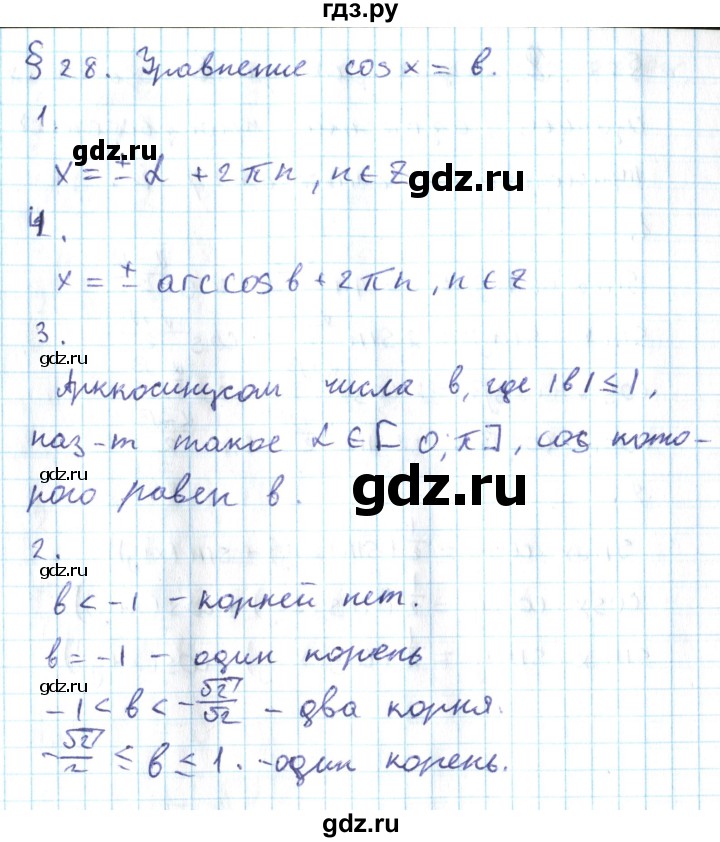 гдз.ру
§ 28. Уравнение cos x = b.
1.
x = ± α + 2πn, n ∈ Z
gdz.ru
gdz.ru
4.
x = ± arccos b + 2πn, n ∈ Z
3.
gdz.ru
Арккосинусом числа b, где |b| ≤ 1,
наз-т такое α ∈ [0; π], cos кото-
gdz.ru
рого равен b.
gdz.ru
2.
gdz.ru
b < -1 - корней нет.
b = -1 - один корень
gdz.ru
-1 < b < -√2/√2 - два корня.
-√2/2 ≤ b ≤ 1. - один корень.
gdz.ru